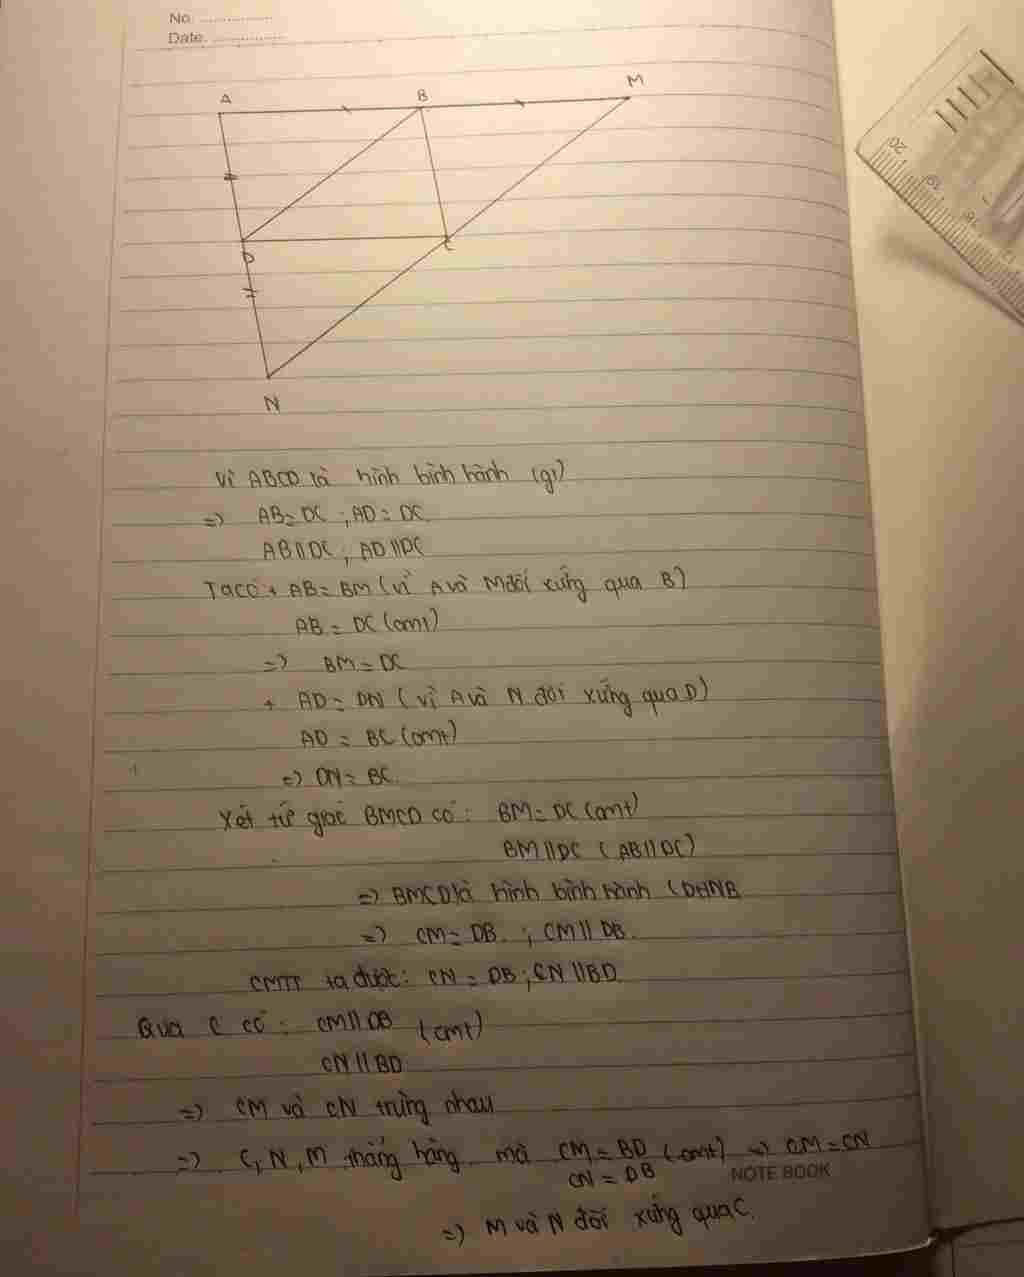 No. ...............
Date. ...............
A B M
D C
N
Vì ABCD là hình bình hành (gt)
=> AB = DC ; AD = DC
AB // DC ; AD // DC
Ta có + AB = BM (vì A và M đối xứng qua B)
AB = DC (cmt)
=> BM = DC
+ AD = DN (vì A và N đối xứng qua D)
AD = BC (cmt)
=> DN = BC.
Xét tứ giác BMCD có : BM = DC (cmt)
BM // DC (AB // DC)
=> BMCD là hình bình hành (DHNB
=> CM = DB . ; CM // DB.
CMTT ta được : CN = DB ; CN // BD
Qua C có : CM // DB (cmt)
CN // BD
=> CM và CN trùng nhau
=> C, N, M thẳng hàng mà CM = BD (cmt) => CM = CN
CN = DB
NOTE BOOK
=> M và N đối xứng qua C.
20 19 18 17